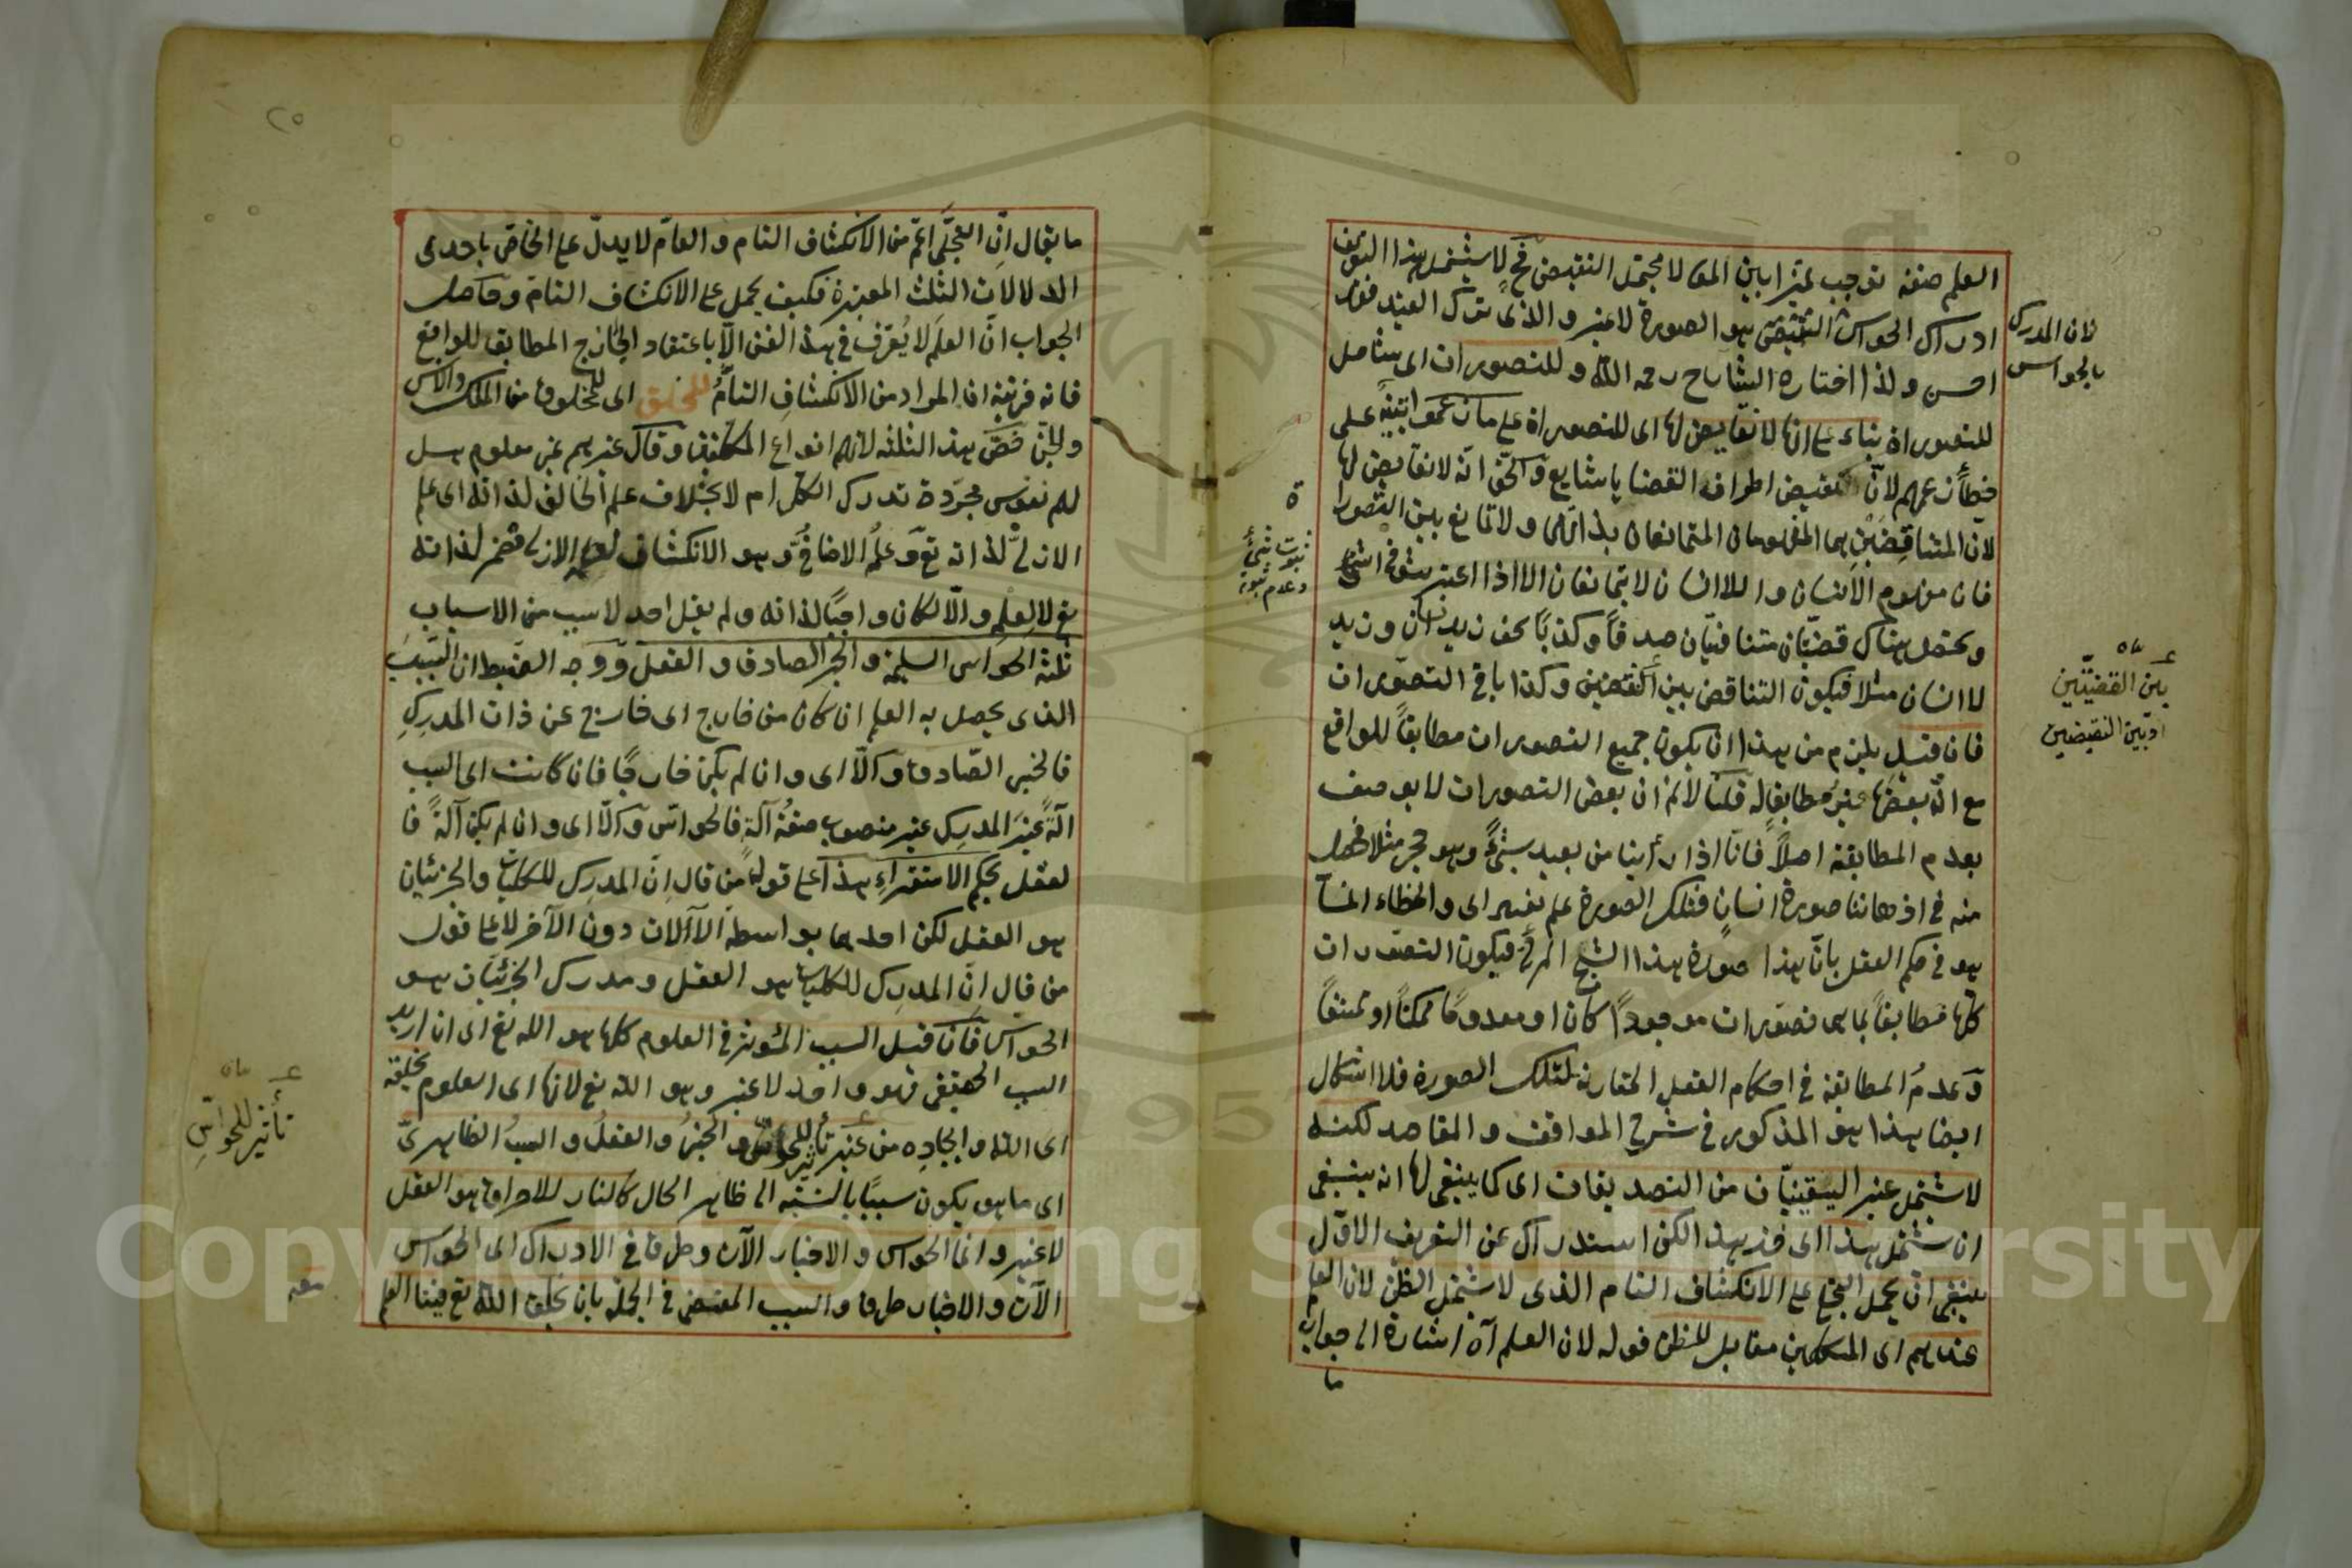 العلم صفة توجب تميزا بين المعا لا يحتمل النقيض فح لا يشتمل هذا التعريف
ادراك الحواس هو الصورة لا غير والذى ترك القيد فقد
احسن ولذا اختاره الشارح رحمه الله وللتصورات اى شامل
للتصورات بناء على انها لا نقايض لها اى للتصورات على ما زعموا تنبيه على
خطأ زعمهم لان نقيض اطراف القضايا شايع والحق انه لا نقايض لها
لان المتناقضين هما المفهومان المتمانعان بذاتهما ولا تمانع بين التصورا
فان مفهوم الانسان واللاانسان لا يتمانعان الا اذا اعتبر
ويحصل هناك قضيتان متنافيتان صدقا وكذبا نحو زيد انسان وزيد
لا انسان مثلا فيكون التناقض بين وكذا باقى التصورات
فان قيل يلزم من هذا ان يكون جميع التصورات مطابقا للواقع
مع ان بعضها غير مطابق له قلنا لانم ان بعض التصورات لا يوصف
بعدم المطابقة اصلا فانا اذا رأينا من بعيد شيئا وهو حجر مثلا فحصل
منه فى اذهاننا صورة انسان فتلك الصورة علم تصورى والخطاء انما
هو فى حكم العقل بان هذا صورة هذا الشبح المرئى فيكون التصورات
كلها مطابقا لما هى تصورات موجودا كان او معدوما ممكنا او ممتنعا
وعدم المطابقة فى احكام العقل المقارنة لتلك الصورة فلا اشكال
ايضا هذا هو المذكور فى شرح المواقف والمقاصد لكنه
لا يشتمل غير اليقينيات من التصديقات اى كما ينبغى لها انه ينبغى
ان يشتمل هذا اى خذ هذا لكن استدراك عن التعريف الاول
ينبغى ان يحمل التجلى على الانكشاف التام الذى لا يشتمل الظن لان العلم
عندهم اى المتكلمين مقابل للظن قوله لان العلم آه اشارة الى جواب
ما
لان المدرك
بالحواس
بين القضيتين
او بين النقيضين
ثبوت شئ
وعدم ثبوته
٢٥
ما يقال ان التجلى اعم من الانكشاف التام والعام لا يدل على الخاص باحدى
الدلالات الثلث المعتبرة فكيف يحمل على الانكشاف التام وحاصل
الجواب ان العلم لا يعرف فى هذا الفن الا باعتقاد الجازم المطابق للواقع
فانه قرينة ان المراد من الانكشاف التام للخلق اى للمخلوق من الملك والانس
والجن خص هذه الثلثة لانهم انواع المكلفين وقال غيرهم غير معلوم هل
لهم نفوس مجردة تدرك الكل ام لا بخلاف علم الخالق لذاته اى علم
الازلى لذاته تع وعلمه الاضافى وهو الانكشاف لذاته
تع لا لعلم والا لكان واجبا لذاته ولم يقل احد لا سبب من الاسباب
ثلثة الحواس السليمة والخبر الصادق والعقل ووجه الضبط ان السبب
الذى يحصل به العلم ان كان من خارج اى خارج عن ذات المدرك
فالخبر الصادق والا اى وان لم يكن خارجا فان كانت اى السبب
الة غير المدرك غير منصوب صفة آلة فالحواس والا اى وان لم يكن آلة فا
لعقل بحكم الاستقراء هذا على قول من قال ان المدرك للكليات والجزئيات
هو العقل لكن احدهما بواسطة الآلات دون الآخر لا على قول
من قال ان المدرك للكليات هو العقل ومدرك الجزئيات هو
الحواس فان قيل السبب المؤثر فى العلوم كلها هو الله تع اى ان اريد
السبب الحقيقى فهو واحد لا غير وهو الله تع لانها اى العلوم بخلقه
اى الله وايجاده من غير تأثير للحواس والخبر والعقل والسبب الظاهرى
اى ما هو يكون سببا بالنسبة الى ظاهر الحال كالنار للاحراق هو العقل
لا غير وانما الحواس والاخبار الآت وطرق فى الادراك اى الحواس
الآت والاخبار طرق والسبب المفضى فى الجملة بان يخلق الله تع فينا العلم
تأثير للحواس
معه
Copyright © King Saud University
195